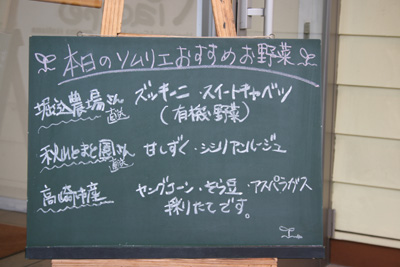 本日のソムリエおすすめお野菜
堀込農場さん直送 ズッキーニ・スイートキャベツ
(有機野菜)
秋山とまと園さん直送 甘しずく・シシリアンルージュ
高崎市産 ヤングコーン・そら豆・アスパラガス
採りたてです。